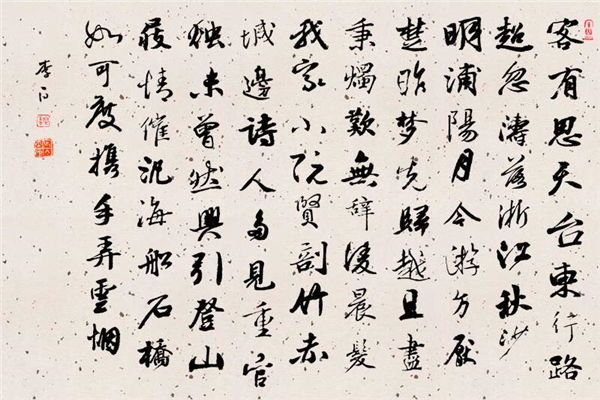 客有思天台東行路
超忽濤落浙江秋沙
明浦陽月今遊方厭
楚昨夢先歸越且盡
秉燭歡無辭凌晨發
我家小阮賢剖竹赤
城邊詩人多見重官
燭未曾然興引登山
屐情催泛海船石橋
如可度攜手弄雲烟
李白